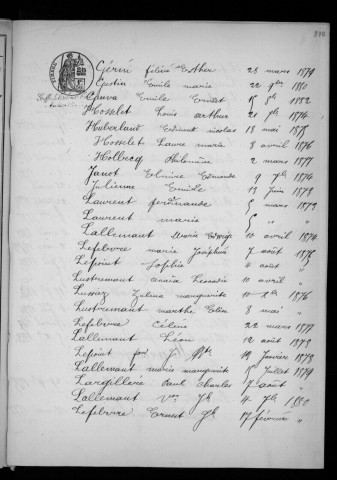 Gérin félicie Esther 23 mars 1879
Emile marie 22 1880
Emile Ernest 15 8bre 1882
Hosselet Louis arthur 21 7bre 1874
Huberland nicolas 18 mai 1875
Hosselet Laure marie 8 avril 1876
Holbecq Philomène 2 mars 1877
Janot Elvire Edmonde 9 7bre 1874
Julienne Emile 13 Juin 1873
Laurent ferdinande 5 mars 1873
Laurent marie 5 " "
Lallemant Maria Edwige 10 avril 1874
Lefebvre marie Joséphine 7 août 1875
Lepoint Sophie 4 août "
Lustremant Léocadie 10 avril "
Zulma marguerite 10 1876
Lustremant marthe Elise 8 mai "
Lefebvre Céline 22 mars 1877
Lallemant Léon 12 août 1873
Lepoint J. Bte 19 Janvier 1873
Lallemant marie marguerite 15 Juillet 1879
Largillière Paul Charles 7 août "
Lallemant Vor Jh 4 7bre 1880
Lefebvre Ernest Jh 17 février "